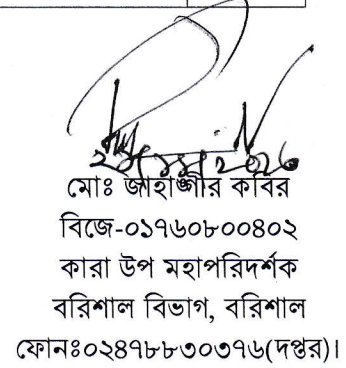 মোঃ জাহাঙ্গীর কবির
বিজে-০১৭৬০৮০০৪০২
কারা উপ মহাপরিদর্শক
বরিশাল বিভাগ, বরিশাল
ফোনঃ০২৪৭৮৮৩০৩৭৬(দপ্তর)।